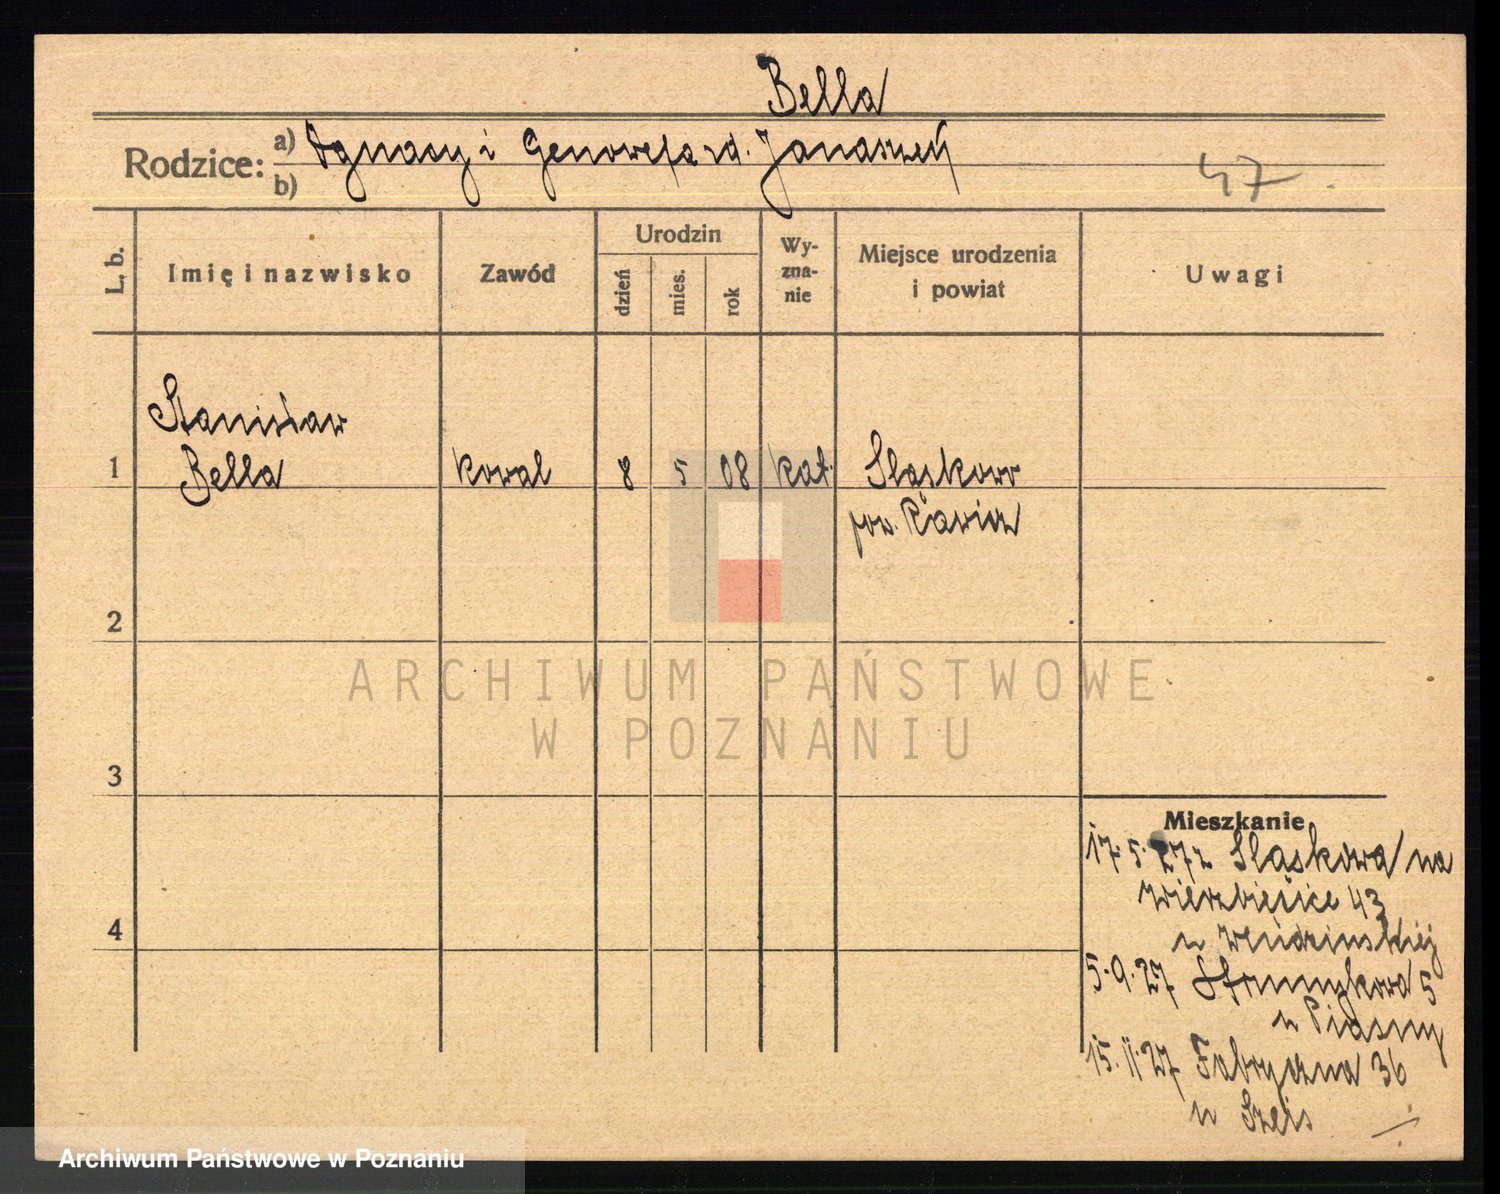 Bella
Rodzice: a) Ignacy i Genowefa zd. Janaszek
b)
47
L. b.
Imię i nazwisko
Zawód
Urodzin
dzień
mies.
rok
Wy-
zna-
nie
Miejsce urodzenia
i powiat
Uwagi
Stanisław
1 Bella kowal 8 5 08 kat. Sląskowo
pow. Rawicz
2
3
4
Mieszkanie
17.5.27 z Sląskowa na
Wierzbięcice 43
u
5.9.27 Strumykowa 5
u Piasny
15.11.27 Fabryczna 36
u Szejs
ARCHIWUM PAŃSTWOWE
W POZNANIU
Archiwum Państwowe w Poznaniu